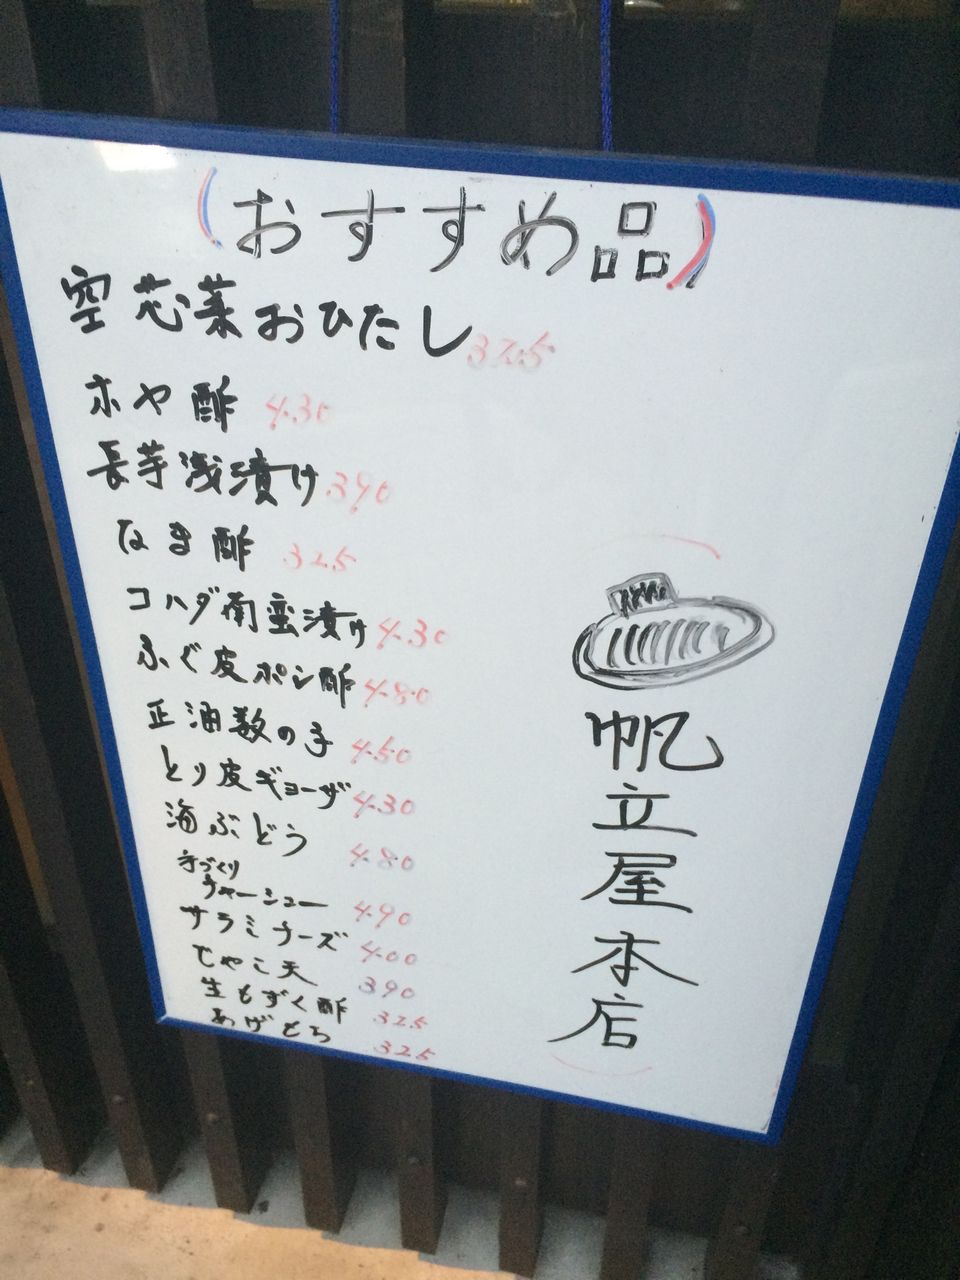 (おすすめ品)
空芯菜おひたし 325
ホヤ酢 430
長芋浅漬け 390
なま酢 325
コハダ南蛮漬け 430
ふぐ皮ポン酢 480
正油数の子 450
とり皮ギョーザ 430
海ぶどう 480
手づくり
チャーシュー 490
サラミチーズ 400
じゃこ天 390
生もずく酢 325
あげもち 325
帆立屋本店